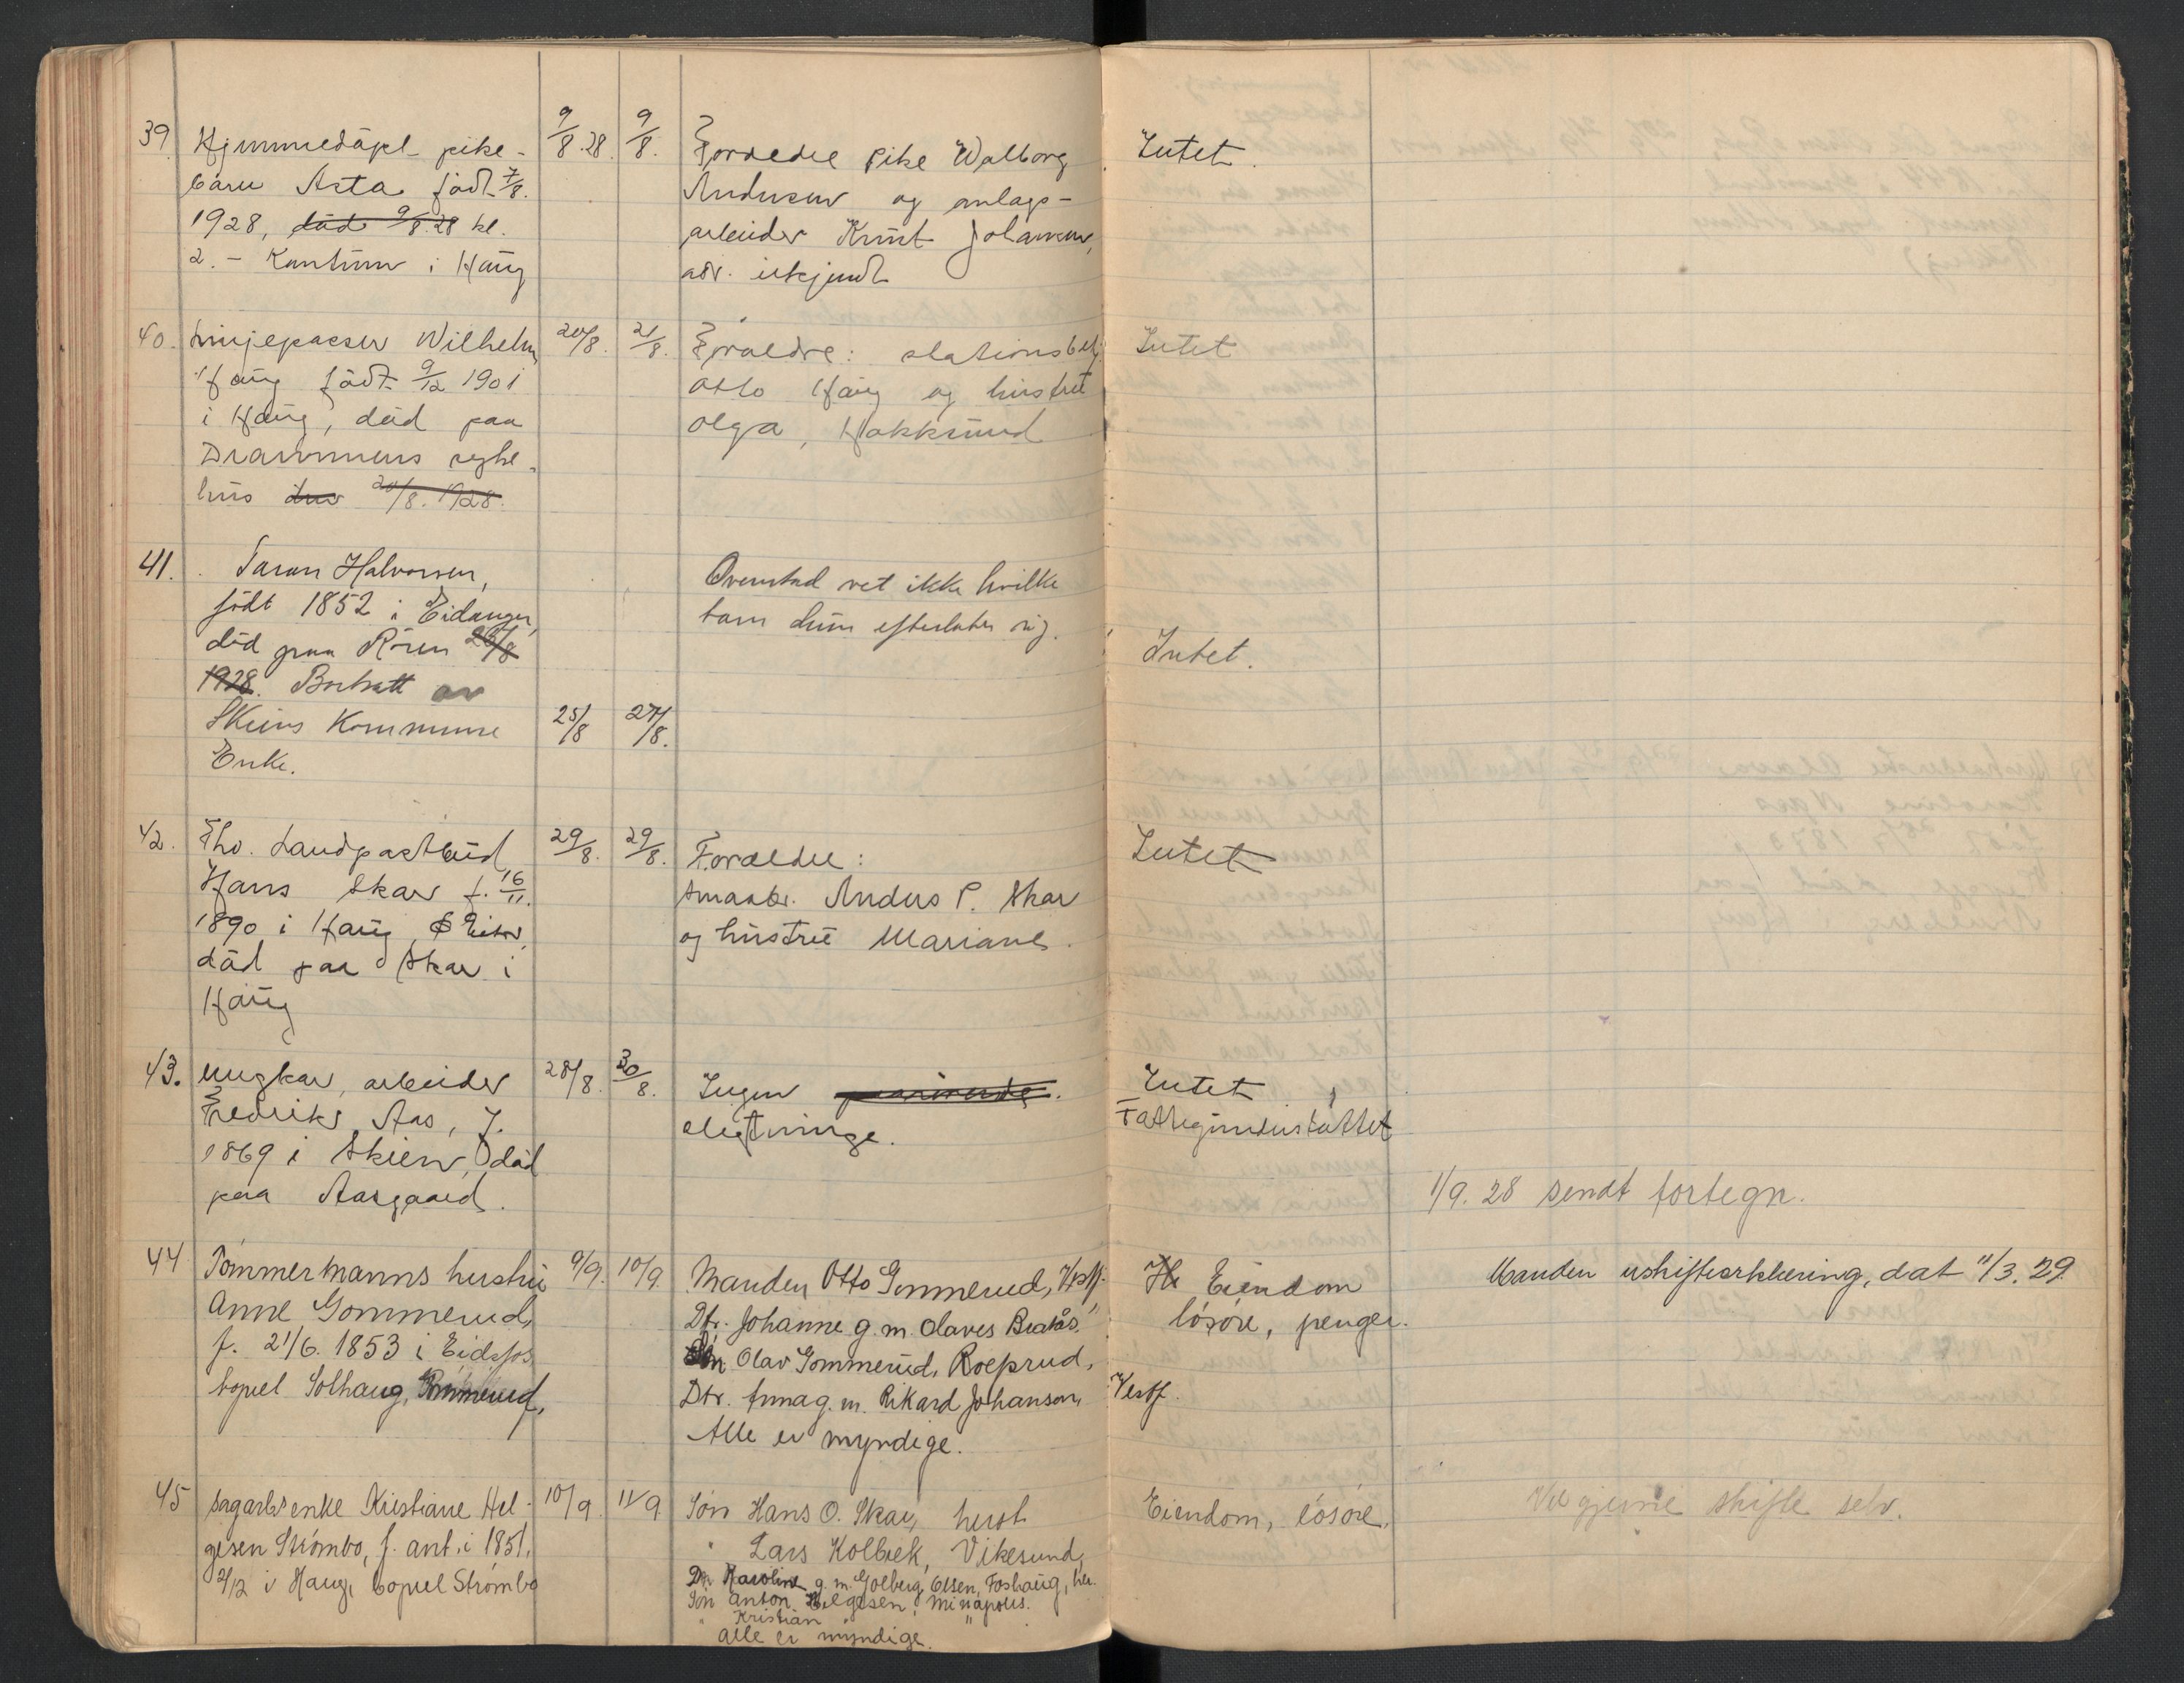 39 Hjemmedøpt pike- 9/8.28 9/8. Forældre pike Walborg Intet.
barn Asta född 7/8. Andersen og anlags-
1928, död 9/8.28 kl. arbeider Knut Johansen,
2. - Kantum i Haug adr. ukjendt
40. Linjepasser Wilhelm 20/8. 21/8. Forældre: stationsbetj. Intet
Haug född 9/12 1901 Otto Haug og hustru
i Haug, död paa Olga, Hokksund
Drammens syke-
hus den 20/8. 1928.
41. Taran Halvorsen, Ovenstad vet ikke hvilke
født 1852 i Eidanger, barn hun efterlater sig.
död paa Rören 26/8 Intet.
1928. Bortsatt av
Skiens Kommune 25/8 27/8.
Enke.
42. Fhv. Landpostbud 29/8. 29/8. Forældre: Intet
Hans Skar f. 16/11. Smaabr. Anders P. Skar
1890 i Haug, Ø Eiker, og hustru Mariane.
död paa Skar i
Haug
43. Ungkar, arbeider 28/8. 30/8. Ingen Intet
Fredriks Aas, f. slegtninge. Fattigunderstöttet
1869 i Skien, död
paa Aasgaard.
1/9. 28 sendt fortegn.
44 Tømmermanns hustru 9/9. 10/9. Manden Otto Gommerud, Vestf. Eiendom Manden uskifteerklæring, dat 11/3. 29.
Anne Gommerud, Dtr. Johanne g. m. Olaves Brakås. " løsøre, penger.
f. 21/6. 1853 i Eidsfos Søn Olav Gommerud,
bopæl Solhaug, Gommerud, Dtr. Anna g. m. Rikard Johanson, Vestf.
Alle er myndige.
45 Sagarb. enke Kristiane Hel- 10/9. 11/9 Søn Hans O. Skar, herst Eiendom, løsøre. Vil gjerne skifte selv.
gesen Strømbo, f. ant. i 1851. " Lars Kolbrek, Vikesund,
2/12 i Haug, bopæl Strømbo Dtr Karoline g. m. Golberg Olsen, Foshaug, her.
Søn Anton Helgesen, Minapolis.
" Kristian " "
Alle er myndige.